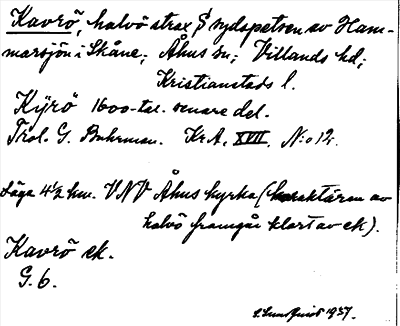 Kavrö, halvö strax S sydspetsen av Ham-
marsjön i Skåne; Åhus sn; Villands hd;
Kristianstads l.
Kÿrö 1600-tal. senare del.
Trol. G. Buhrman. Kr.A. XVII. N:o 12.
Läge 4½ km. VNV Åhus kyrka (karaktären av
halvö framgår klart av ek).
Kavrö ek.
G. 6.
1937.